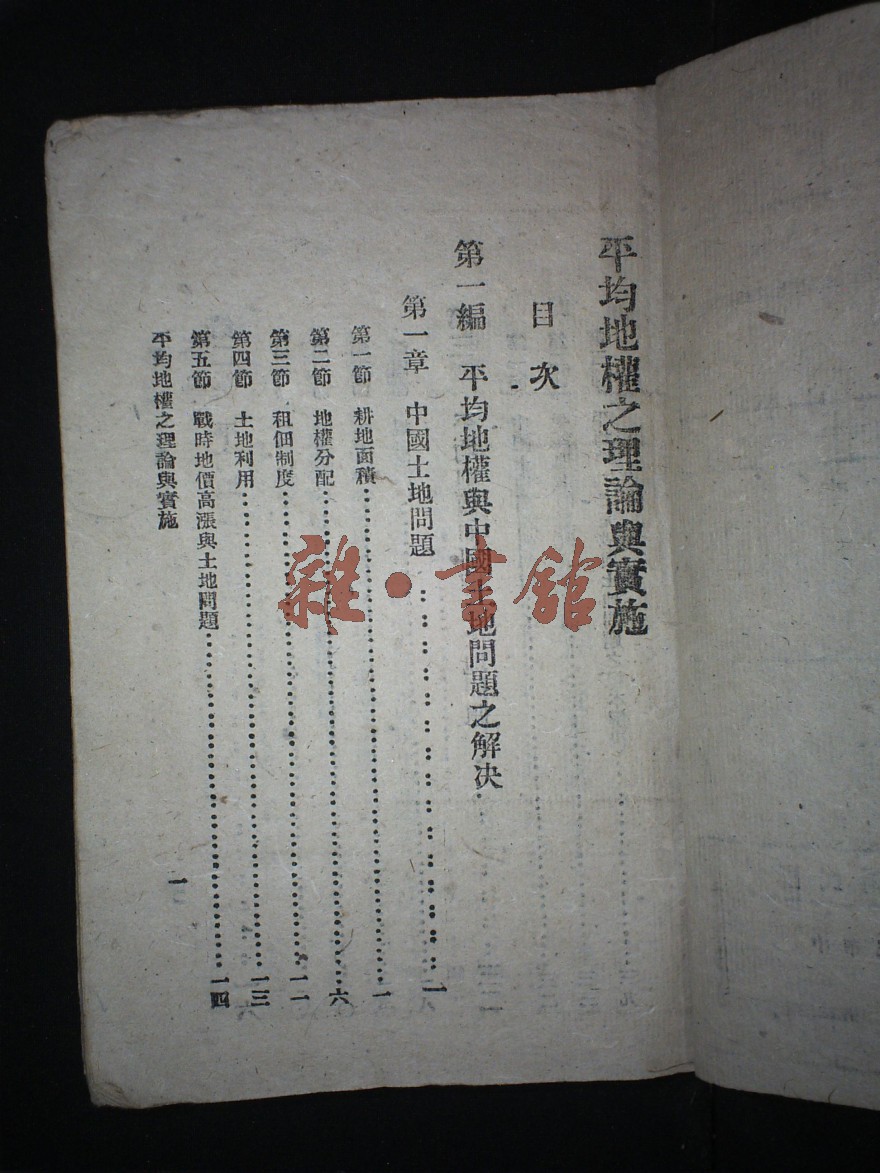 平均地權之理論與實施
目次
第一編 平均地權與中國土地問題之解決
第一章 中國土地問題……………一
第一節 耕地面積……………一
第二節 地權分配……………六
第三節 租佃制度……………一一
第四節 土地利用……………一三
第五節 戰時地價高漲與土地問題……………一四
平均地權之理論與實施
一
雜·書館